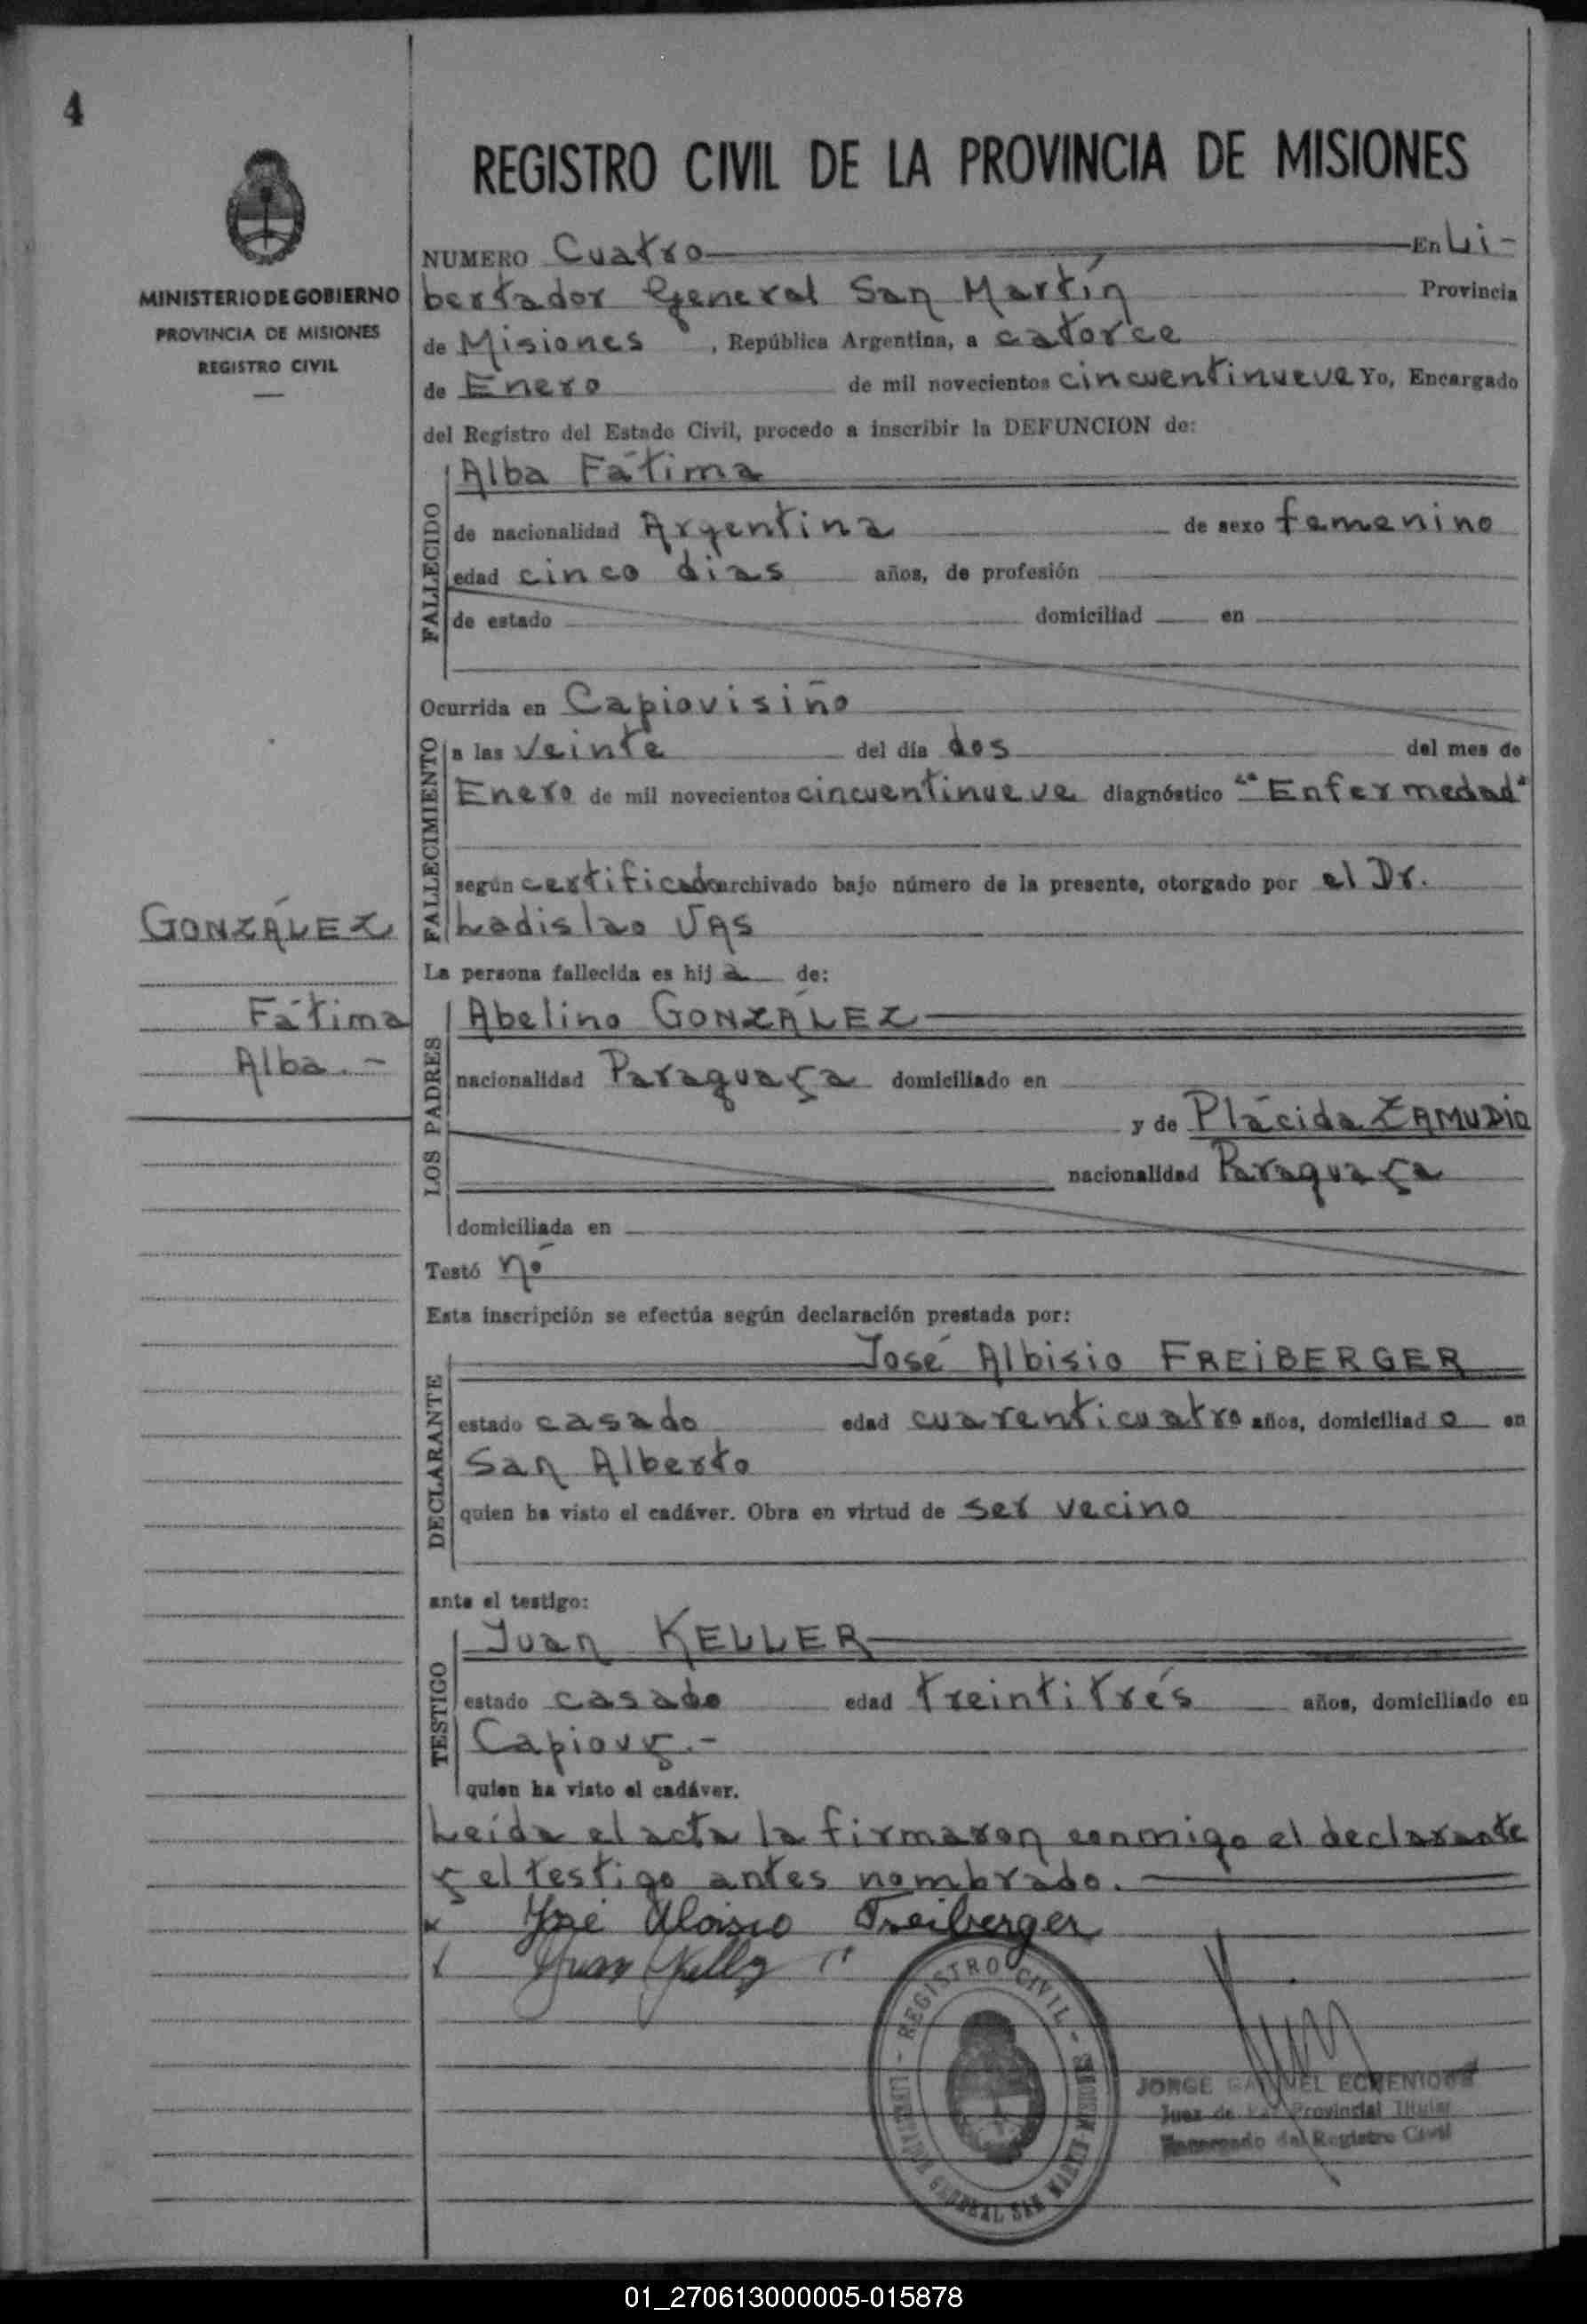 4
REGISTRO CIVIL DE LA PROVINCIA DE MISIONES
MINISTERIO DE GOBIERNO
PROVINCIA DE MISIONES
REGISTRO CIVIL
NUMERO Cuatro En Li-
bertador General San Martín Provincia
de Misiones, República Argentina, a catorce
de Enero de mil novecientos cincuentinueve Yo, Encargado
del Registro del Estado Civil, procedo a inscribir la DEFUNCION de:
FALLECIDO
Alba Fátima
de nacionalidad Argentina de sexo femenino
edad cinco días años, de profesión
de estado domiciliad en
Ocurrida en Capiovisiño
FALLECIMIENTO
a las veinte del día dos del mes de
Enero de mil novecientos cincuentinueve diagnóstico "Enfermedad"
según certificado archivado bajo número de la presente, otorgado por el Dr.
Ladislao VAS
GONZÁLEZ
Fátima
Alba.-
La persona fallecida es hija de:
LOS PADRES
Abelino GONZÁLEZ
nacionalidad Paraguaya domiciliado en
y de Plácida ZAMUDIO
nacionalidad Paraguaya
domiciliada en
Testó nó
Esta inscripción se efectúa según declaración prestada por:
DECLARANTE
José Albisio FREIBERGER
estado casado edad cuarenticuatro años, domiciliado en
San Alberto
quien ha visto el cadáver. Obra en virtud de ser vecino
ante el testigo:
TESTIGO
Juan KELLER
estado casado edad treintitrés años, domiciliado en
Capiovy.-
quien ha visto el cadáver.
Leída el acta la firmaron conmigo el declarante
y el testigo antes nombrado.
José Aloisio Freiberger
Juan
REGISTRO CIVIL - LIBERTADOR GENERAL SAN MARTIN
JORGE
Juez de Paz Provincial Titular
Encargado del Registro Civil
01_270613000005-015878